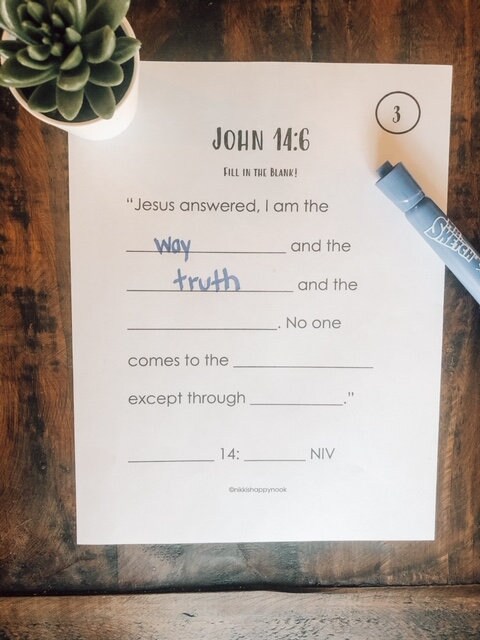 3
JOHN 14:6
FILL IN THE BLANK!
“Jesus answered, I am the
way and the
truth and the
. No one
comes to the
except through ."
14: NIV
©nikkishappynook